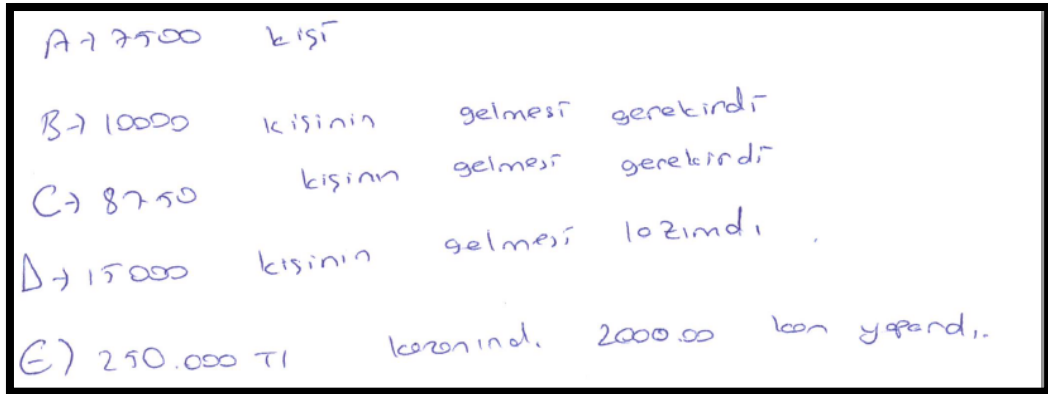 A → 7500 kişi
B → 10000 kişinin gelmesi gerekirdi
C → 8750 kişinin gelmesi gerekirdi
D → 15000 kişinin gelmesi lazımdı
E) 250.000 Tl kazanırdı. 2000.00 kar yapardı.